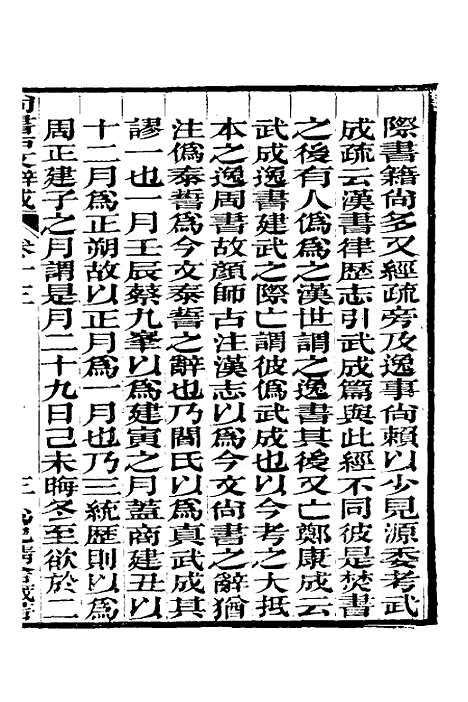 際書籍尚多又經疏旁及逸事尚賴以少見源委考武
成疏云漢書律歴志引武成篇與此經不同彼是焚書
之後有人僞爲之漢世謂之逸書其後又亡鄭康成云
武成逸書建武之際亡謂彼僞武成也以今考之大抵
本之逸周書故顔師古注漢志以爲今文尚書之辭猶
注僞泰誓爲今文泰誓之辭也乃閻氏以爲真武成其
謬一也一月壬辰蔡九峯以爲建寅之月蓋商建丑以
十二月爲正朔故以正月爲一月也乃三統歴則以爲
周正建子之月謂是月二十九日己未晦冬至欲於二
尚書古文辨惑 卷十三 三